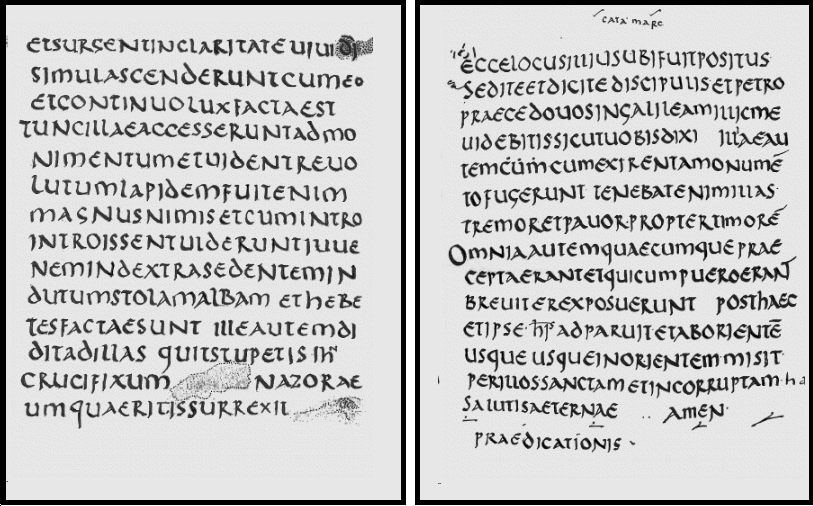 ETSURGENTINCLARITATEUIUIDI
SIMULASCENDERUNTCUMEO
ETCONTINUOLUXFACTAEST
TUNCILLAEACCESSERUNTADMO
NIMENTUMETUIDENTREUO
LUTUMLAPIDEMFUITENIM
MAGNUSNIMISETCUMINTRO
INTROISSENTUIDERUNTIUUE
NEMINDEXTRASEDENTEMIN
DUTUMSTOLAMALBAM ETHEBE
TESFACTAESUNT ILLEAUTEMDI
DITADILLAS QUITSTUPETIS
CRUCIFIXUM NAZORAE
UMQUAERITISSURREXIT
CATA·MARC
ECCELOCUSILLIUSUBIFUITPOSITUS
SEDITEETDICITEDISCIPULISETPETRO
PRAECEDOUOSINGALILEAMILLICME
UIDEBITISSICUTUOBISDIXI ILLAEAU
TEMCUMCUMEXIRENTAMONUMĒ
TOFUGERUNT TENEBATENIMILLAS·
TREMORETPAUOR·PROPTERTIMORĒ
OMNIAAUTEMQUAECUMQUEPRAE
CEPTAERANTETQUICUMPUEROERANT
BREUITEREXPOSUERUNT POSTHAEC
ETIPSE·ħS̄ ADPARUITETABORIENTĒ
USQUE USQUEINORIENTEM·MISIT·
PERILLOSSANCTAMETINCORRUPTAM·ha
SALUTISAETERNAE ·· AMEN·
PRAEDICATIONIS·